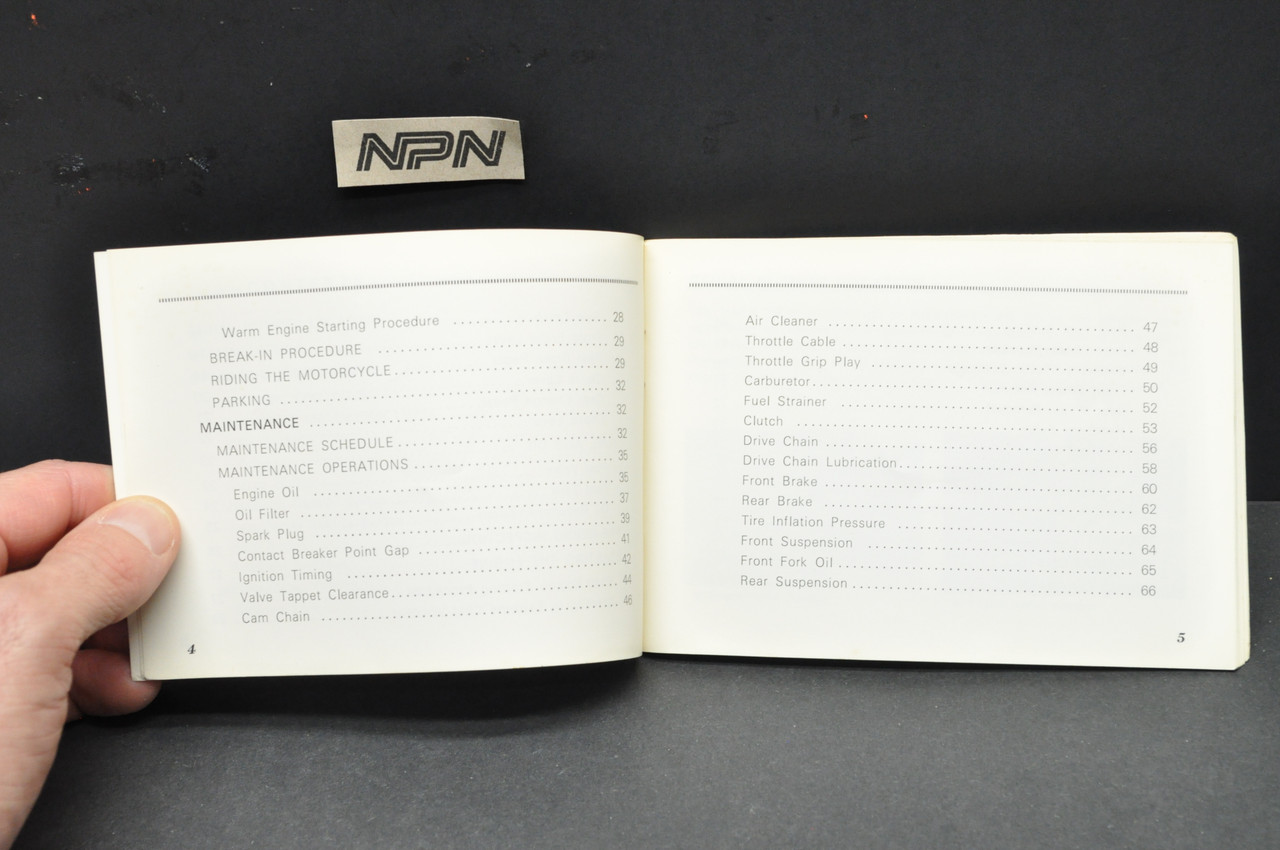 NPN
Warm Engine Starting Procedure .................... 28
BREAK-IN PROCEDURE .................... 29
RIDING THE MOTORCYCLE .................... 29
PARKING .................... 32
MAINTENANCE .................... 32
MAINTENANCE SCHEDULE .................... 32
MAINTENANCE OPERATIONS .................... 35
Engine Oil .................... 35
Oil Filter .................... 37
Spark Plug .................... 39
Contact Breaker Point Gap .................... 41
Ignition Timing .................... 42
Valve Tappet Clearance .................... 44
Cam Chain .................... 46
4
Air Cleaner .................... 47
Throttle Cable .................... 48
Throttle Grip Play .................... 49
Carburetor .................... 50
Fuel Strainer .................... 52
Clutch .................... 53
Drive Chain .................... 56
Drive Chain Lubrication .................... 58
Front Brake .................... 60
Rear Brake .................... 62
Tire Inflation Pressure .................... 63
Front Suspension .................... 64
Front Fork Oil .................... 65
Rear Suspension .................... 66
5